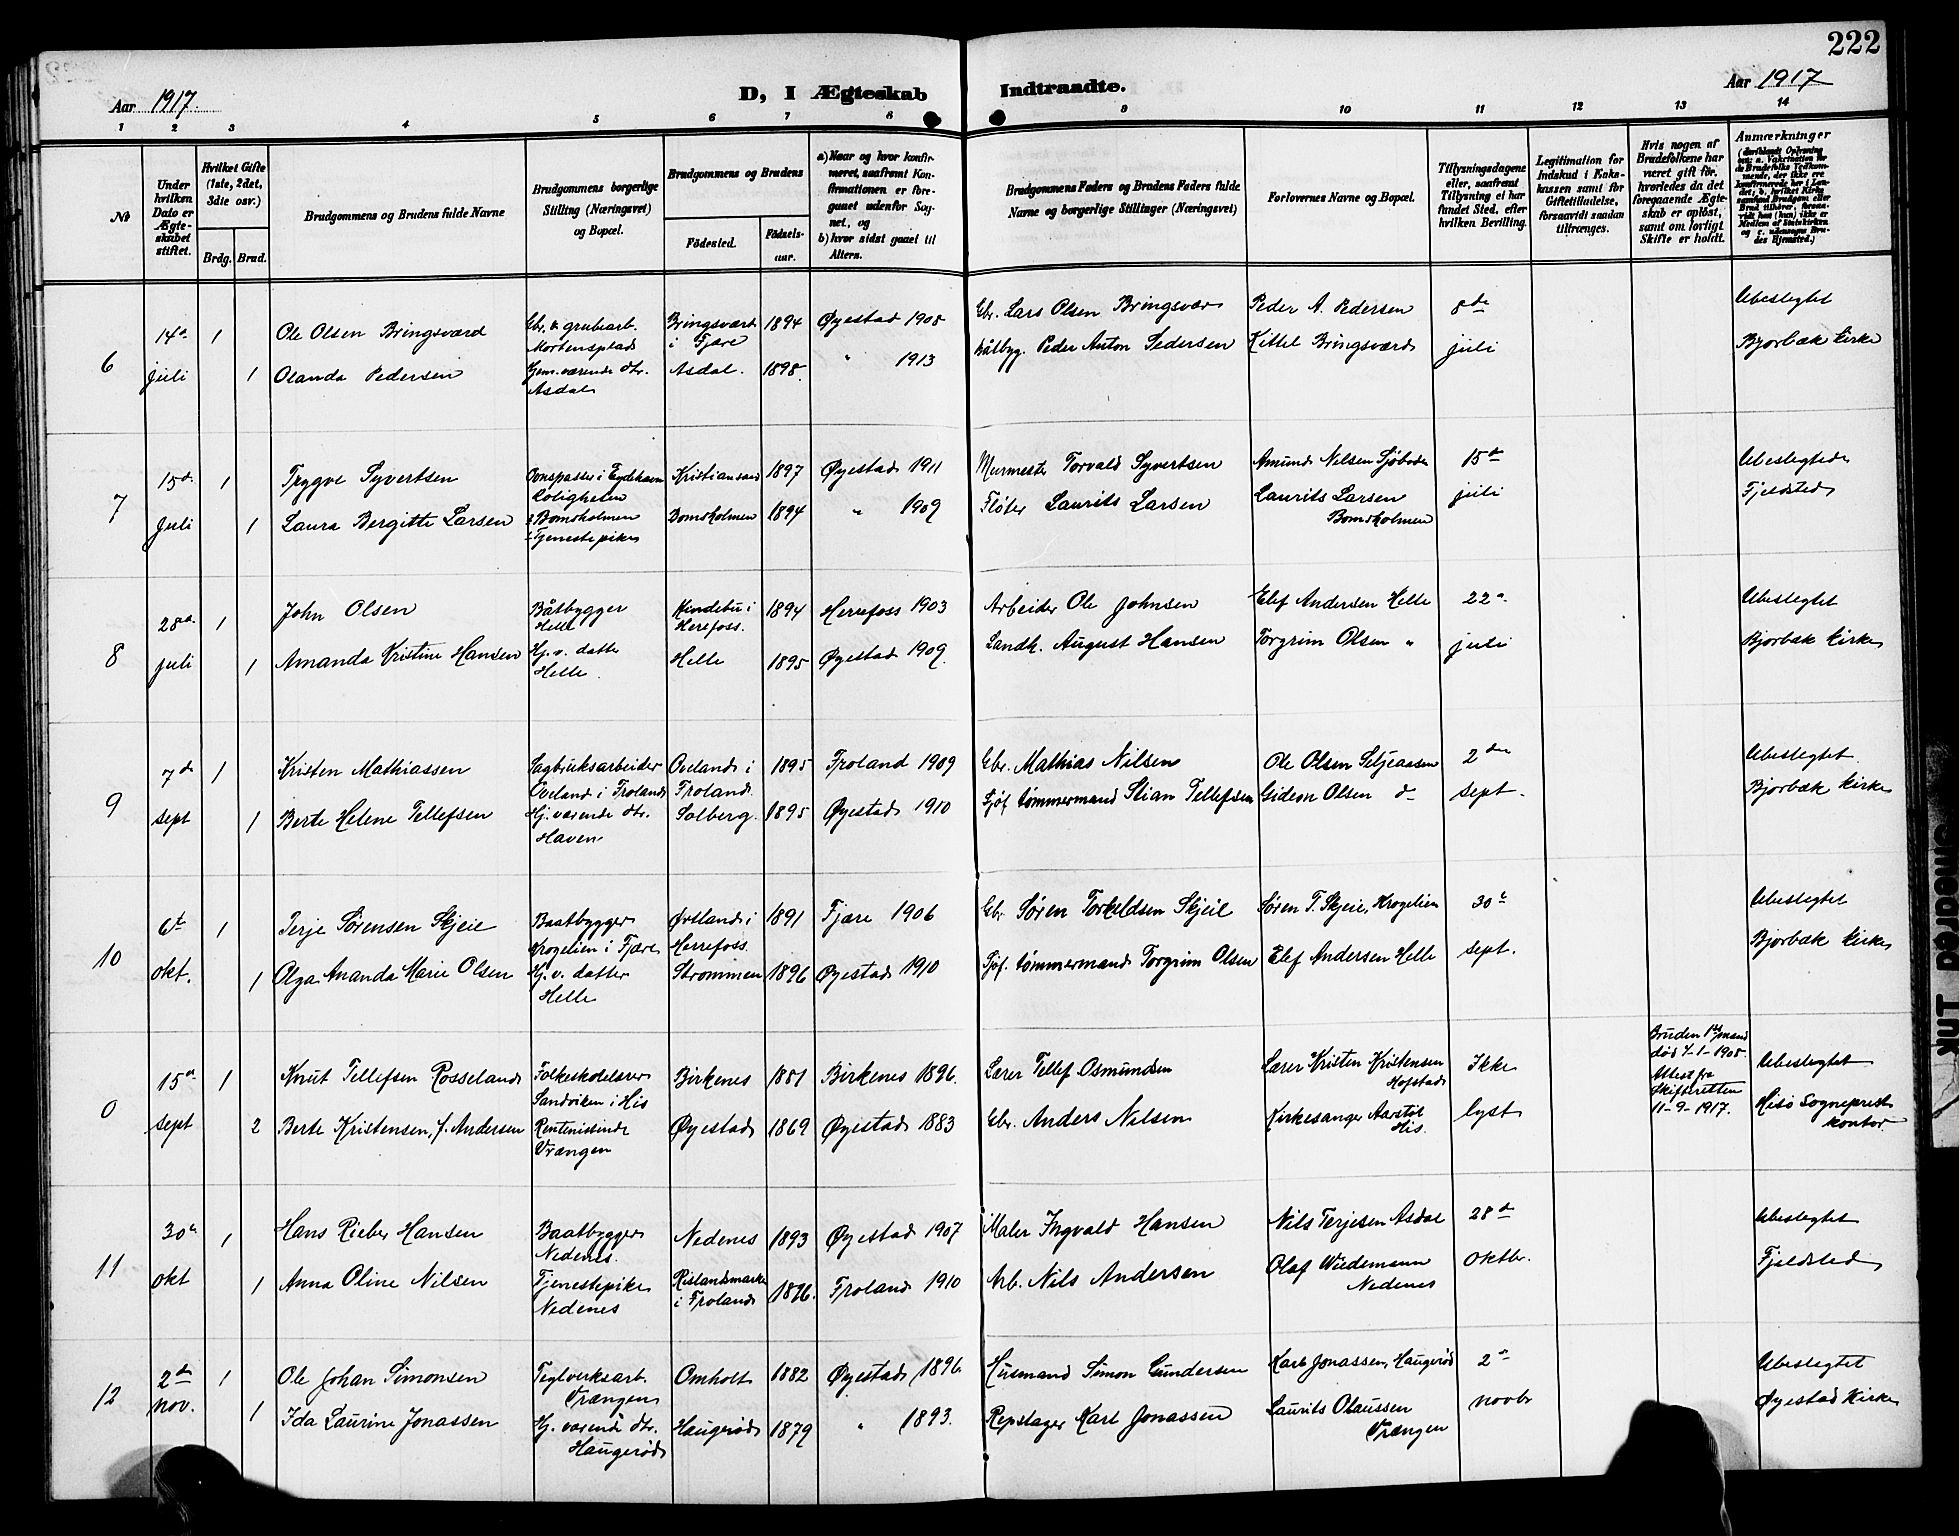 222
Aar 1917.
D, I Ægteskab
Indtraadte.
Aar 1917
1 2 3 4 5 6 7 8 9 10 11 12 13 14
No
Under hvilken Dato er Ægteskabet stiftet.
Hvilket Gifte (1ste, 2det, 3die osv.)
Brdg. Brud.
Brudgommens og Brudens fulde Navne
Brudgommens borgerlige Stilling (Næringsvei) og Bopæl.
Brudgommens og Brudens
Fødested.
Fødselsaar.
a) Naar og hvor konfirmeret, saafremt Konfirmationen er foregaaet udenfor Sognet, og
b) hvor sidst gaaet til Alters.
Brudgommens Faders og Brudens Faders fulde Navne og borgerlige Stillinger (Næringsvei)
Forlovernes Navne og Bopæl.
Tillysningsdagene eller, saafremt Tillysning ei har fundet Sted, efter hvilken Bevilling.
Legitimation for Indskud i Enkekassen samt for Giftetilladelse, forsaavidt saadan tiltrænges.
Hvis nogen af Brudefolkene har været gift før, hvorledes da det foregaaende Ægteskab er opløst, samt om lovligt Skifte er holdt.
Anmærkninger
6
14de juli
1
Ole Olsen Bringsværd
Gbr. & grubearb. Mortensplads
Bringsværd i Fjære
1894
Øyestad 1908
Gbr. Lars Olsen Bringsvær
Peder A. Pedersen
8de juli
Ubeslegtet
1
Olanda Pedersen
Hjem. værende dtr. Asdal
Asdal.
1898.
" 1913
Båtbyg. Peder Anton Pedersen
Kittel Bringsværd
Bjorbæk Kirke
7
15de Juli
1
Trygve Syvertsen
Ovnspasser i Eydehavn Roligheten
Kristiansand
1897
Øyestad 1911
Murmestr Torvald Syvertsen
Amund Nilsen Sjøboden
15de juli
Ubeslegtede
1
Laura Bergitte Larsen
Bomsholmen Tjenestepike
Bomsholmen
1894
" 1909
Fløter Laurits Larsen
Laurits Larsen Bomsholmen
Fjeldsted
8
28de juli
1
John Olsen
Båtbygger Helle
Kindebu i Herefoss.
1894
Herrefoss 1903
Arbeider Ole Johnsen
Elef Andersen Helle
22de juli
Ubeslegtet
1
Amanda Kristine Hansen
Hj. v. datte Helle.
Helle
1895
Øyestad 1909.
Sandk. August Hansen
Torgrim Olsen "
Bjorbæk Kirke
9
7de sept
1
Kristen Mathiassen
Sagbruksarbeider Oveland i Froland
Oveland i Froland
1895
Froland 1909
Gbr. Mathias Nilsen
Ole Olsen Seljeaasen
2den sept.
Ubeslegtet.
1
Berte Helene Tellefsen
Hj. værende dtr. Haven
Solberg.
1895
Øyestad 1910
Sjøf. tømmermand Stian Tellefsen
Gideon Olsen do
Bjorbæk Kirke
10
6te okt.
1
Terje Sørensen Skjeie
Baatbygger Krogelien i Fjære
Østland i Herrefoss
1891
Fjære 1906
Gbr Søren Torkeldsen Skjeie
Søren T. Skjeie, Krogelien
30te sept.
Ubeslegtet
1
Olga Amanda Marie Olsen
Hj. v. datter Helle
Strommen
1896
Øyestad 1910
Sjøf. tømmermand Torgrim Olsen
Elef Andersen Helle
Bjorbæk Kirke
0
15de sept
1
Knut Tellefsen Rosseland
Folkeskolelærer Sandviken i His
Birkenes
1881
Birkenes 1896.
Lærer Tellef Osmundsen
Lærer Kristen Kristensen Hofstad
Ikke lyst
Bruden 1ste mand død 4-1-1908. Attest fra Skifteretten 11-9-1917.
Ubeslegtet
2
Berte Kristensen, f. Andersen
Renteniskinde Vrængen
Øyestad
1869
Øyestad 1883
Gbr. Anders Nilsen
Kirkesanger Aarstøl His.
Hisø Sogneprest kontor.
11
30te okt
1
Hans Rieber Hansen
Baatbygger Nedenes.
Nedenes
1893
Øyestad 1907
Maler Ingvald Hansen
Nils Terjesen Asdal
28de oktbr.
Ubeslegtet
1
Anna Oline Nilsen
Tjenestepike Nedenes
Rislandsmarke i Froland
1896.
Froland 1910
Arb. Nils Andersen
Olaf Wiedemann Nedenes
Fjeldsted
12
2den nov.
1
Ole Johan Simonsen
Teglverksarb. Vrængen
Omholt
1882
Øyestad 1896
Husmand Simon Gundersen
Karl Jonassen, Haugerød
2den novbr
Ubeslegtet
1
Ida Laurine Jonassen
Hj. værende dtr. Haugerød
Haugerød
1879
" 1893.
Repslager Karl Jonassen
Laurits Olaussen Vrængen
Øyestad Kirke